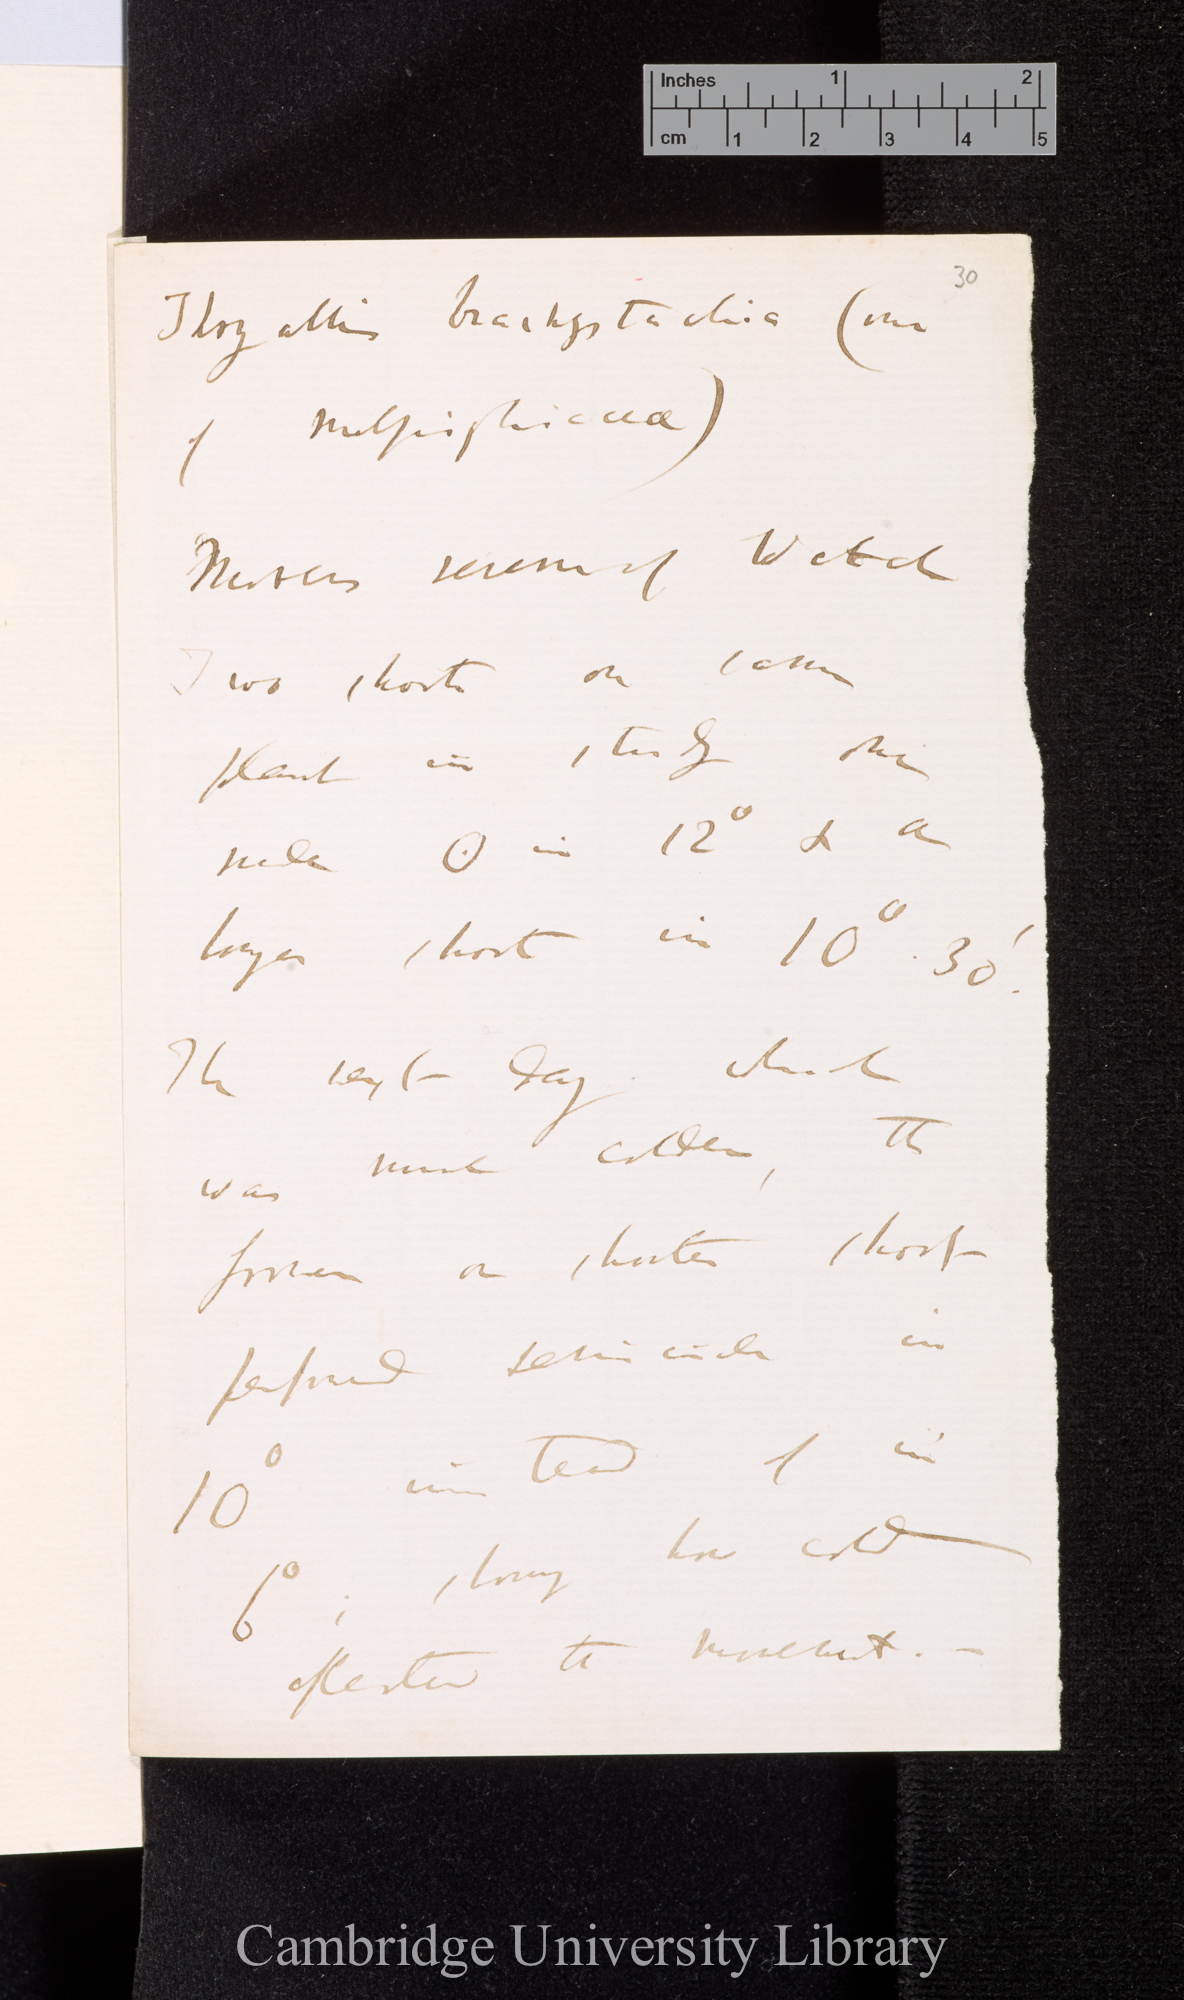 Inches 1 2
cm 1 2 3 4 5
30
Thryallis brachystachia (one
of Malpighiaceæ)
Moves reverse of Watch
Two shoots on same
plant in study this
made O in 12° & a
longer shoot in 10°. 30'.
The next day which
was much colder, the
former or shorter shoot
performed semicircle in
10° instead of in
6°; showing how cold
affected the movement. —
Cambridge University Library